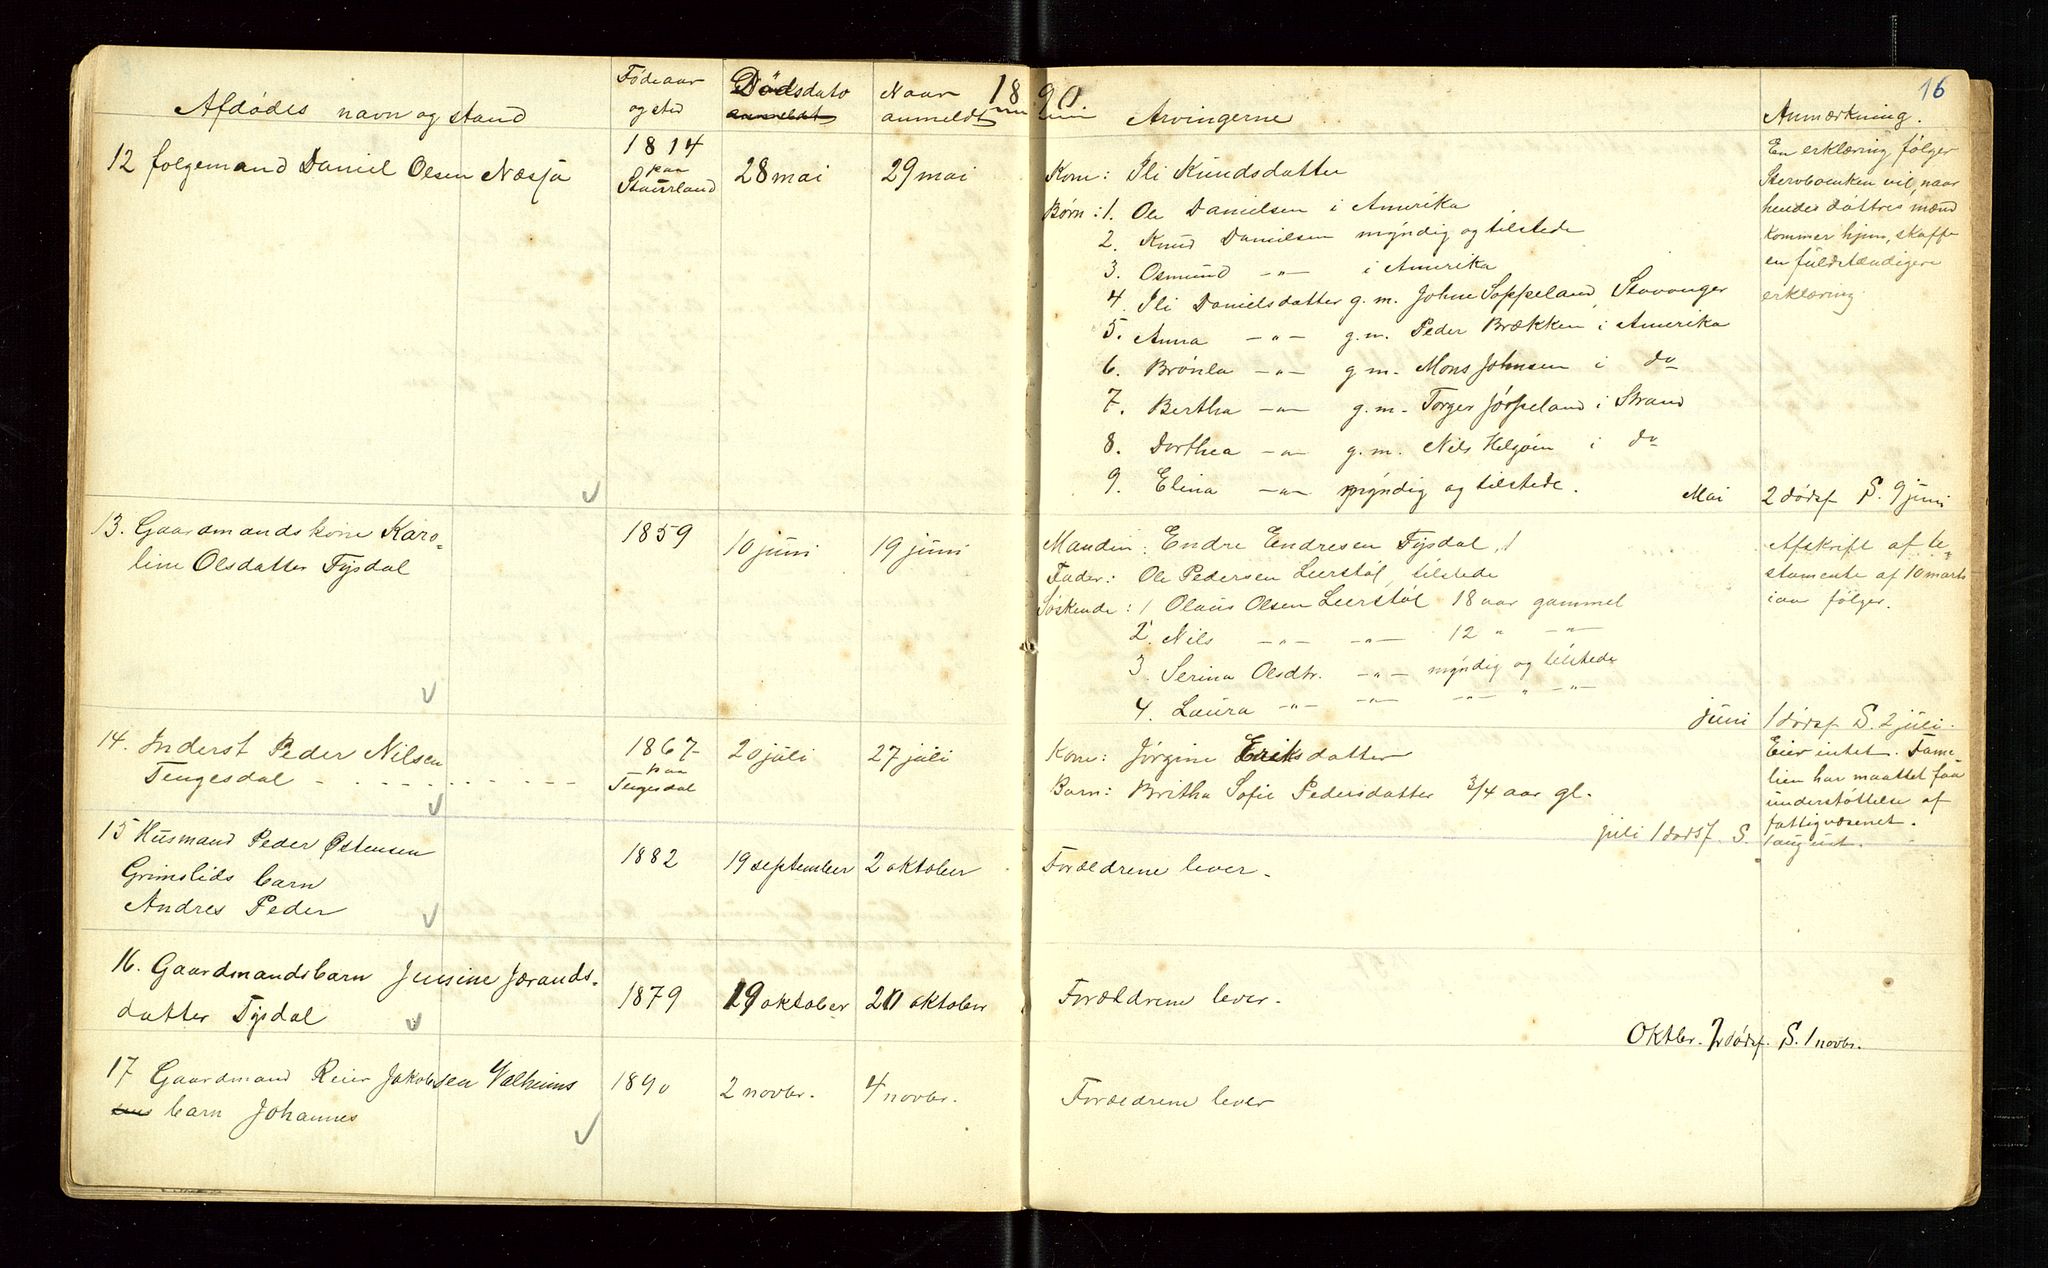 16
1890.
Afdødes navn og stand
Fødeaar og sted
Dødsdato anmeldt
Naar anmeldt
Arvingerne
Anmærkning.
12 folgemand Daniel Olsen Næsjä
1814 paa Staurland
28 mai
29 mai
Kone: Ili Knudsdatter
Børn: 1. Ole Danielsen i Amerika
2. Knud Danielsen myndig og tilstede
3. Osmund -"- i Amerika
4. Ili Danielsdatter g.m. Johne Soppeland, Stavanger
5. Anna -"- g.m. Peder Brækken i Amerika
6. Brønla -"- g m. Mons Johnsen i do
7. Bertha -"- g.m. Torger Jørpeland i Strand
8. Dorthea -"- g.m. Nils Helgøen i do
9. Elina -"- myndig og tilstede.
En erklæring følger
Stervboenken vil, naar
hendes døttres mænd
kommer hjem, skaffe
en fuldstændigere
erklæring.
Mai 2 dødsf S. 9 juni
13. Gaardmandskone Karo-
line Olsdatter Tysdal
1859
10 juni
19 juni
Manden: Endre Endresen Tysdal, 1
Fader: Ole Pedersen Leerstøl, tilstede
Søskende: 1 Olaus Olsen Leerstøl 18 aar gammel
2. Nils -"- -"- 12 " -"-
3. Serina Olsdtr. -"- myndig og tilstede
4. Laura -"- -"- -"- " -"-
Afskrift af te-
stamente af 10 marts
iaar følger.
juni 1 dødsf S. 2 juli.
14. Inderst Peder Nilsen
Tengesdal
1867 paa Tengesdal
20 juli
27 juli
Kone: Jørgine Eriksdatter
Barn: Britha Sofie Pedersdatter 3/4 aar gl.
Eier intet. Fami-
lien har maattet faa
understøttelse af
fattigvæsenet.
juli 1 dødsf. S. 1 august.
15 Husmand Peder Østensen
Grimslids barn
Andres Peder
1882
19 september
2 oktober
Forældrene lever.
16. Gaardmandsbarn Jensine Jærands-
datter Tysdal
1879
19 oktober
20 oktober
Forældrene lever.
Oktbr. 2 dødsf. S. 1 novbr.
17 Gaardmand Reier Jakobsen Valheims
barn Johannes
1890
2 novbr.
4 novbr.
Forældrene lever